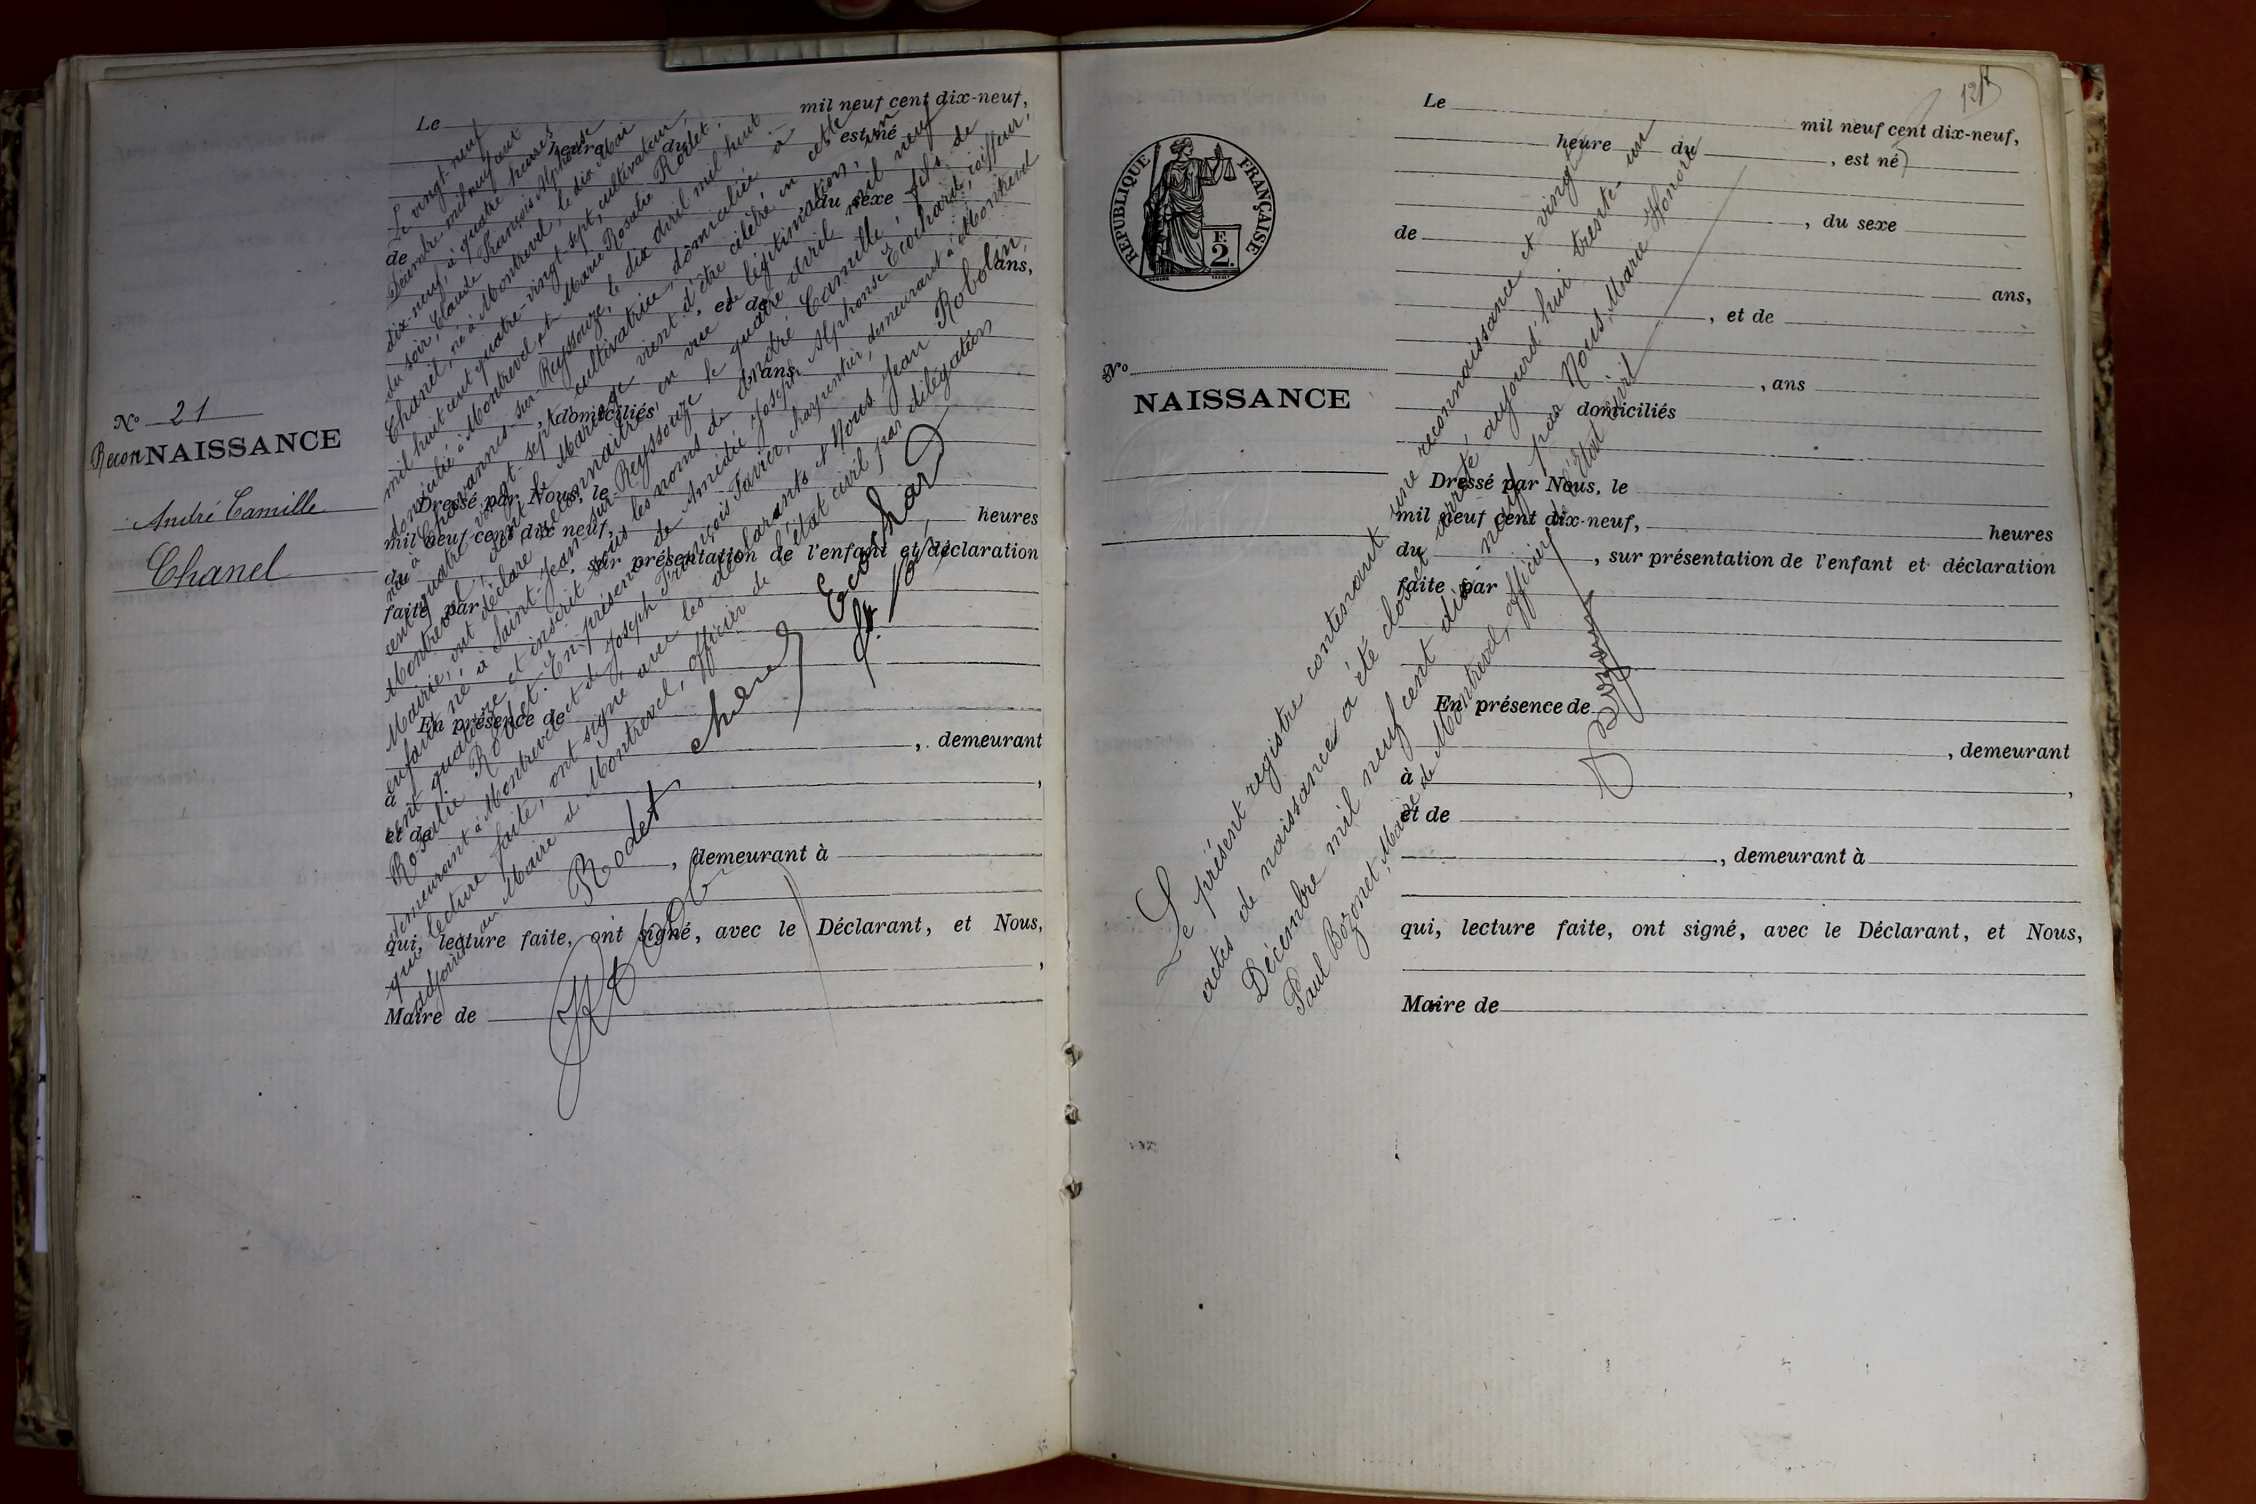 Le mil neuf cent dix-neuf,
heure du est né
de du sexe
ans,
et de
ans
, domiciliés
Dressé par Nous, le
mil neuf cent dix-neuf, heures
du , sur présentation de l'enfant et déclaration
faite par
En présence de
, demeurant
à ,
et de
, demeurant à
qui, lecture faite, ont signé, avec le Déclarant, et Nous,
,
Maire de
No 21
ReconNAISSANCE
André Camille
Chanel
Le vingt-neuf
Décembre mil neuf cent
dix-neuf, à quatre heures
du soir, Claude François Alphonse
Chanel, né à Montrevel, le dix Mai
mil huit cent quatre-vingt-sept, cultivateur,
domicilié à Montrevel et Marie Rosalie Rodet,
née à Chavannes-sur-Reyssouze, le dix Avril mil huit
cent quatre vingt-sept cultivatrice, domiciliée à
Montrevel, dont le Mariage vient d'être célébré en cette
Mairie, ont déclaré reconnaître en vue de légitimation, un
enfant né à Saint-Jean-sur-Reyssouze le quatre Avril mil neuf
cent quatorze et inscrit sous les noms de André Camille, fils de
Rosalie Rodet. En présence de Amédée Joseph Alphonse Ecochard, coiffeur,
demeurant à Montrevel et de Joseph François Favier, charpentier, demeurant à Montrevel
qui, lecture faite, ont signé avec les déclarants et Nous Jean Robolin,
adjoint au Maire de Montrevel, officier de l'état civil par délégation
Rodet Chanel Ecochard
125
RÉPUBLIQUE FRANÇAISE
F.
2.
Le mil neuf cent dix-neuf,
heure du , est né
de , du sexe
ans,
, et de
, ans
domiciliés
No
NAISSANCE
Dressé par Nous, le
mil neuf cent dix-neuf, heures
du , sur présentation de l'enfant et déclaration
faite par
En présence de
, demeurant
à ,
et de
, demeurant à
qui, lecture faite, ont signé, avec le Déclarant, et Nous,
Maire de
Le présent registre contenant une reconnaissance et vingt
actes de naissances a été clos et arrêté aujourd'hui trente-un
Décembre mil neuf cent dix neuf par Nous, Marie Honoré
Paul Bozonet, Maire de Montrevel, officier de l'État civil
Bozonet